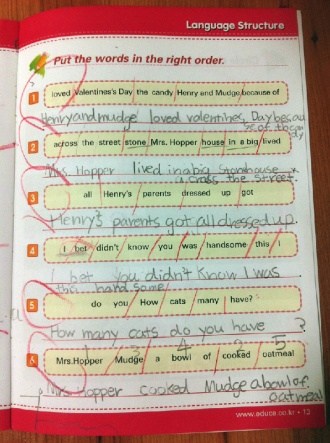 Language Structure
Put the words in the right order.
1 loved Valentines's Day the candy Henry and Mudge because of
Henry and mudge loved valentines Day becau
se of the can
dy
2 across the street stone Mrs. Hopper house in a big lived
Mrs. Hopper lived in a big Stonehouse
across the street.
3 all Henry's parents dressed up got
Henry's parents got all dressed up.
4 I bet didn't know you was handsome this I
I bet you didn't know I was
this handsome.
5 do you How cats many have?
How many cats do you have ?
1 3 4 2 5
6 Mrs.Hopper Mudge a bowl of cooked oatmeal
Mrs Hopper cooked Mudge a bowl of
oatmeal
www.educa.co.kr • 13